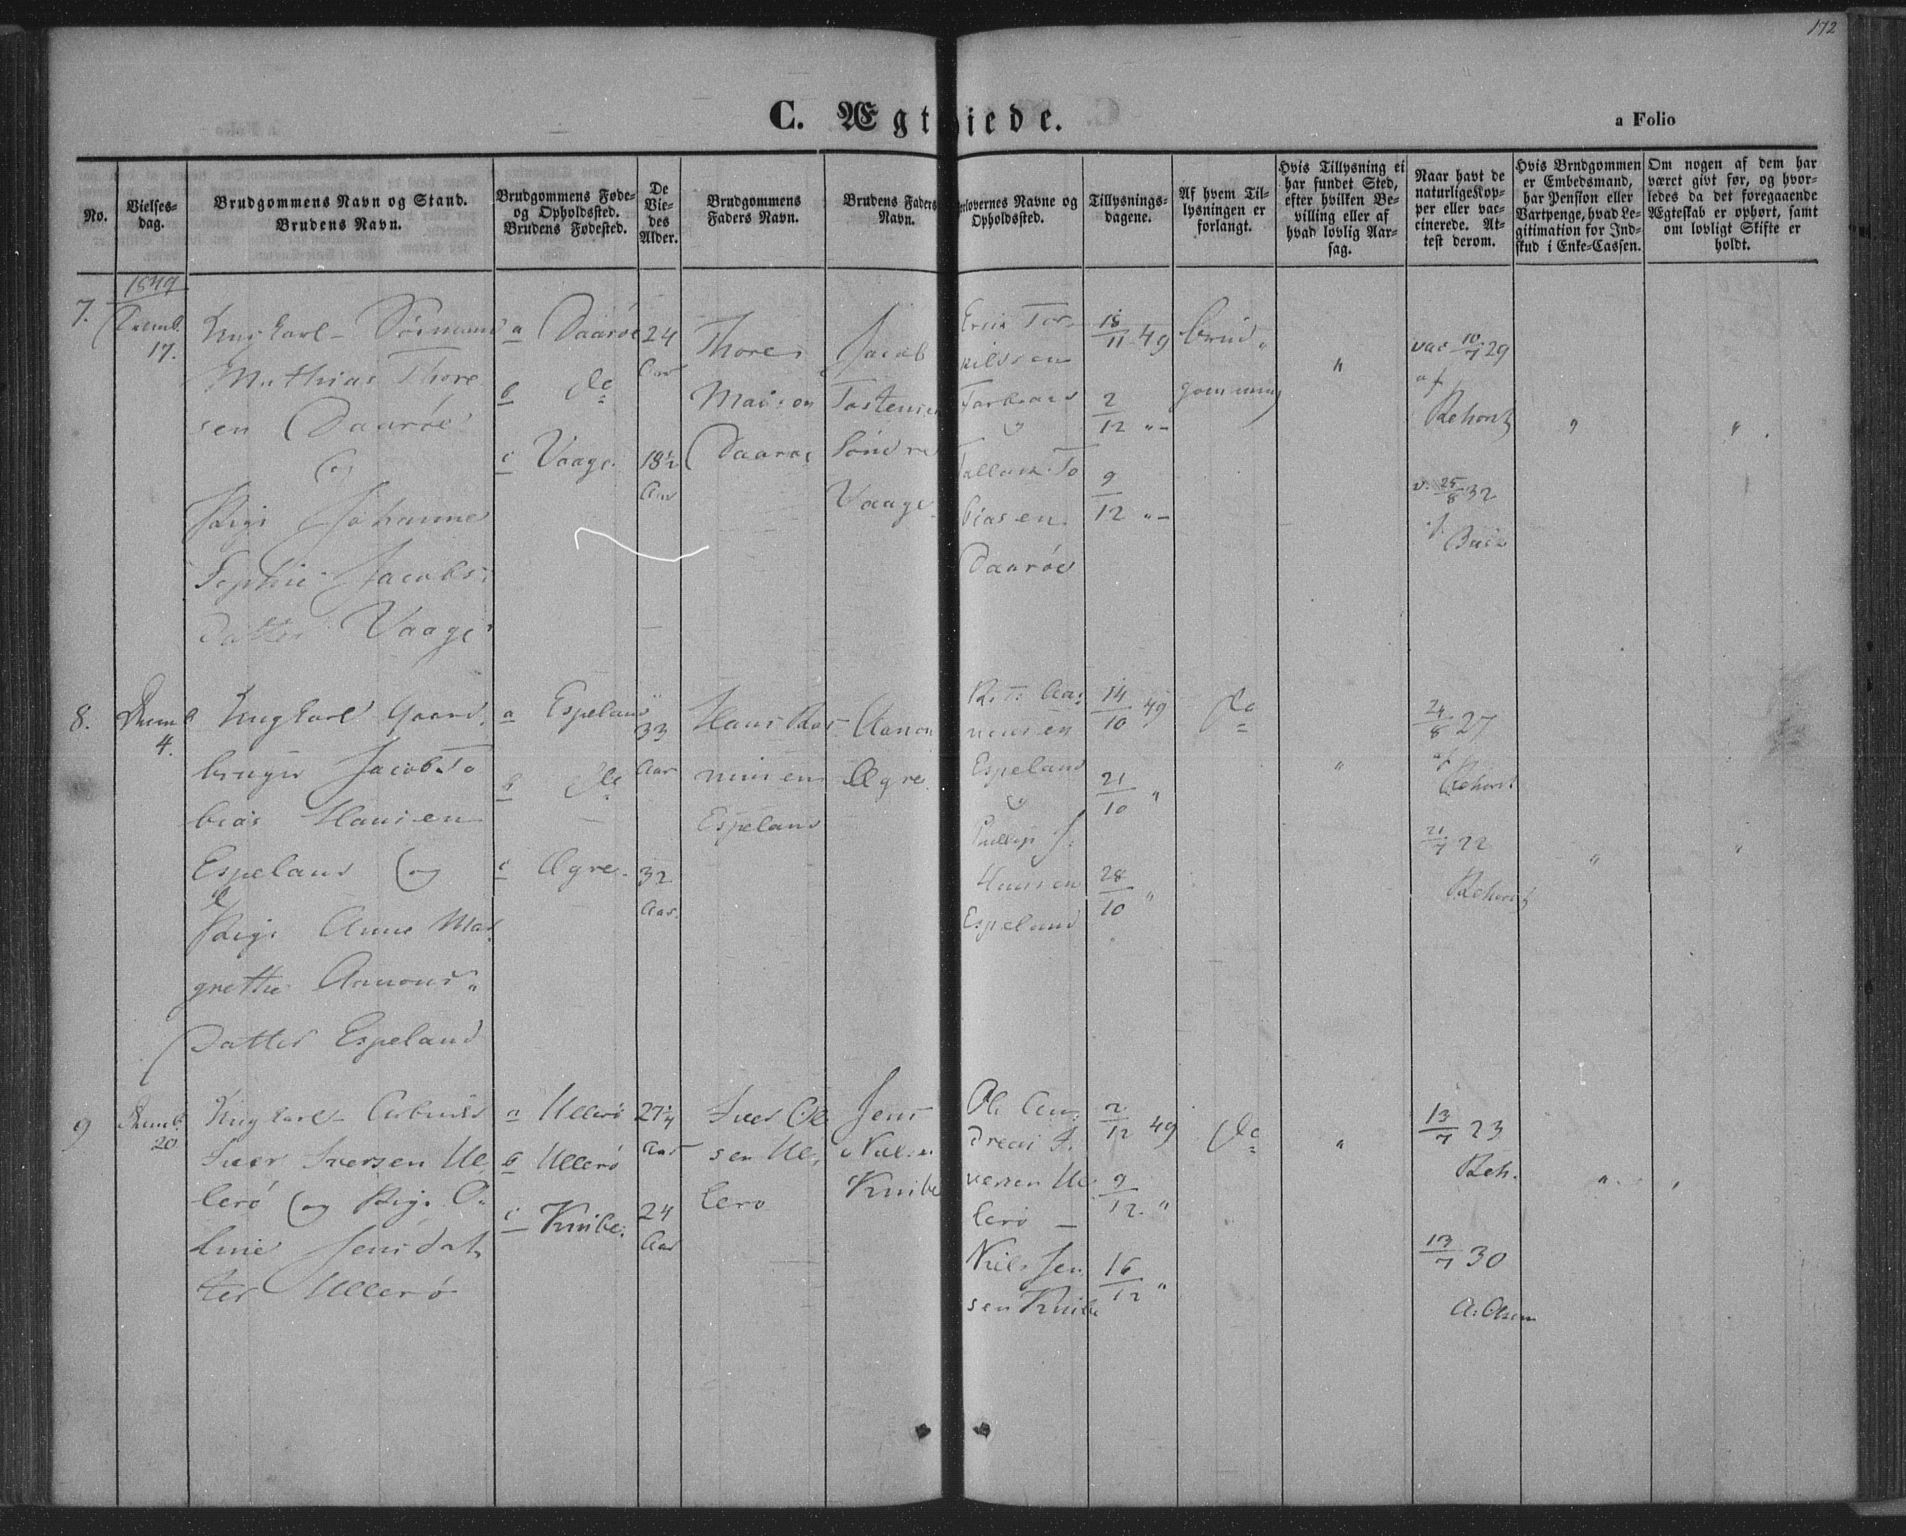 172
C. Ægteviede.
a Folio
No.
Vielses-
dag.
Brudgommens Navn og Stand.
Brudens Navn.
Brudgommens Føde-
og Opholdssted.
Brudens Fødested.
De
Vie-
des
Alder.
Brudgommens
Faders Navn.
Brudens Faders
Navn.
Forlovernes Navne og
Opholdssted.
Tillysnings-
dagene.
Af hvem Til-
lysningen er
forlangt.
Hvis Tillysning ei
har fundet Sted,
efter hvilken Be-
villing eller af
hvad lovlig Aar-
sag.
Naar havt de
naturlige Kop-
per eller vac-
cinerede. At-
test derom.
Hvis Brudgommen
er Embedsmand,
har Pension eller
Vartpenge, hvad Le-
gitimation for Ind-
skud i Enke-Cassen.
Om nogen af dem har
været givt før, og hvor-
ledes da det foregaaende
Ægteskab er ophørt, samt
om lovligt Skifte er
holdt.
1849
7.
Decemb.
17.
Ungkarl Sørmand
Mathias Thore
sen Daarøe
og
Pige Johanne
Sophie Jacobs
Datter Vaage
a Daarøe
b do
c Vaage
24
Aar
18½
Aar
Thore
Daarøe
Jacob
Tostensen
Søndre
Vaage
Daarøe
18/11 49
2/12 "
9/12 "
Brud
gommen
"
vac 10/7 29
af
Rehorst
v. 25/8 32
af
"
"
8.
Decemb
4.
Ungkarl Gaard
bruger Jacob To
bias Hansen
Espeland og
Pige Anne Mar
grethe Aanons
Datter Espeland
a Espeland
b do
c Ægre
33
Aar
32
Aar
Hans Ras
musen
Espeland
Aanon
Ægre
Espeland
Hansen
Espeland
14/10 49
21/10 "
28/10 "
do
"
24/8 27
af
Rehorst
21/7 22
Rehorst
"
"
9
Decemb.
20
Ungkarl Arbeids
Iver Iversen Ul
lerø og Pige O
line Jensdat
ter Ullerø
a Ullerø
b Ullerø
c Knibe
27¼
Aar
24
Aar
Iver Ol
sen Ul
lerø
Jens
Nielsen
Knibe
Ole An
dreas I
versen Ul
lerø
Niels Jen
sen Knibe
2/12 49
9/12 "
16/12 "
do
"
13/7 23
Reh.
13/7 30
A. Olsen
"